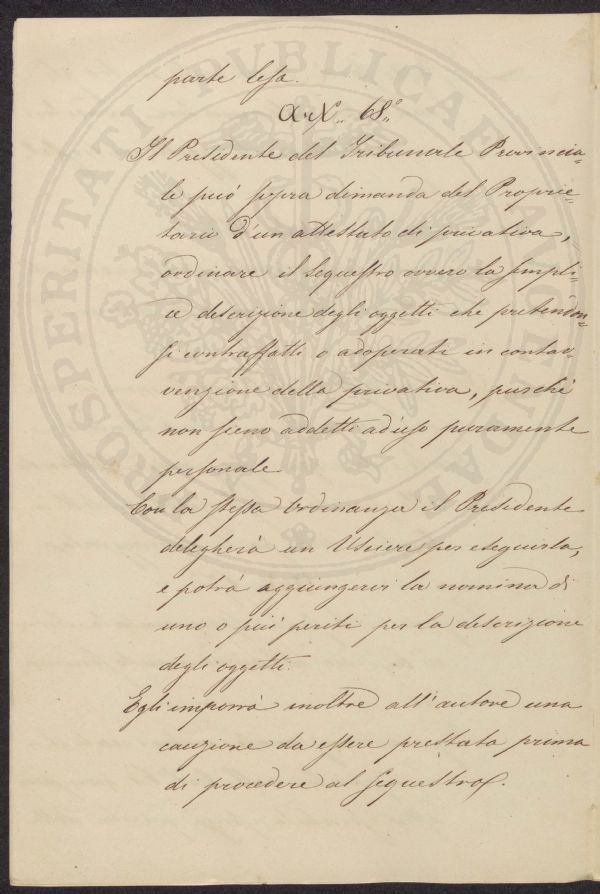 parte lesa.
Art.. 68..
Il Presidente del Tribunale Provincia=
le può sopra dimanda del Proprie=
tario d'un attestato di privativa,
ordinare il sequestro ovvero la sempli=
ce descrizione degli oggetti che pretendon=
si contraffatti o adoperati in contra,,
venzione della privativa, purchè
non sieno addetti ad uso puramente
personale.
Con la stessa Ordinanza il Presidente
delegherà un Usciere per eseguirla,
e potrà aggiungervi la nomina di
uno o più periti per la descrizione
degli oggetti.
Egli imporrà inoltre all'autore una
cauzione da essere prestata prima
di procedere al sequestro.
PROSPERITATI PUBLICAE